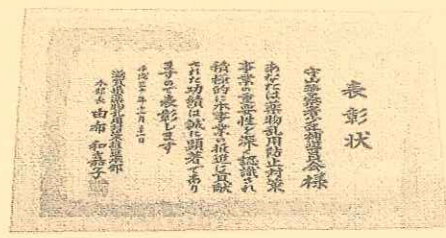 表彰状
守山警察署少年補導員会様
あなたは薬物乱用防止対策
事業の重要性を深く認識され
積極的に本事業の推進に貢献
された功績は誠に顕著であり
ますので表彰します
平成三十年十一月三十一日
滋賀県薬物乱用対策推進本部
本部長 由布 和嘉子